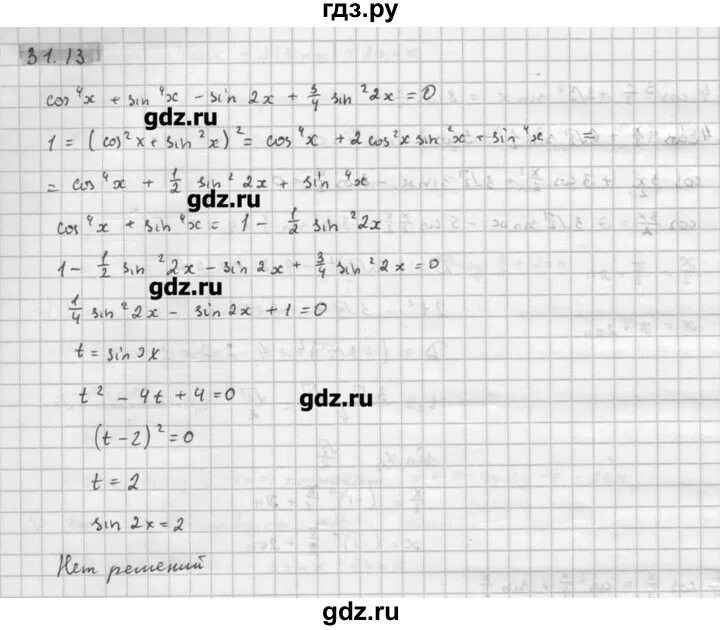 гдз.ру
31.13
cos⁴x + sin⁴x - sin 2x + 3/4 sin²2x = 0
gdz.ru
1 = (cos²x + sin²x)² = cos⁴x + 2cos²x sin²x + sin⁴x =
= cos⁴x + 1/2 sin²2x + sin⁴x
gdz.ru
cos⁴x + sin⁴x = 1 - 1/2 sin²2x
1 - 1/2 sin²2x - sin 2x + 3/4 sin²2x = 0
gdz.ru
1/4 sin²2x - sin 2x + 1 = 0
t = sin 2x
t² - 4t + 4 = 0
gdz.ru
(t - 2)² = 0
t = 2
sin 2x = 2
Нет решений
gdz.ru